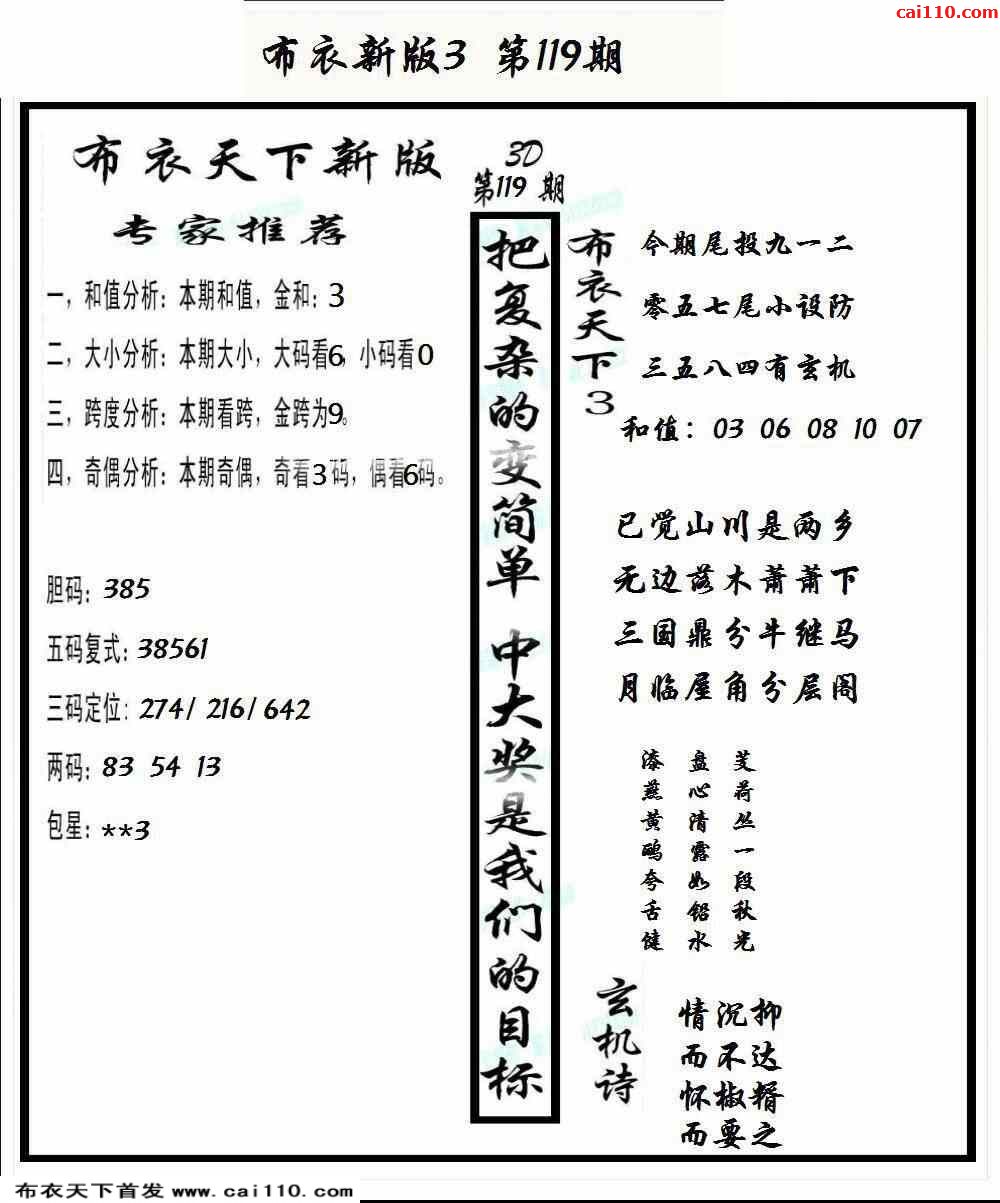 cai110.com
布衣新版3 第119期
布衣天下新版
专家推荐
一，和值分析：本期和值，金和：3
二，大小分析：本期大小，大码看6，小码看0
三，跨度分析：本期看跨，金跨为9。
四，奇偶分析：本期奇偶，奇看3码，偶看6码。
胆码：385
五码复式：38561
三码定位：274/ 216/ 642
两码：83 54 13
包星：**3
3D
第119 期
把复杂的变简单 中大奖是我们的目标
布衣天下3
今期尾投九一二
零五七尾小设防
三五八四有玄机
和值：03 06 08 10 07
已觉山川是两乡
无边落木萧萧下
三国鼎分牛继马
月临屋角分层阁
芰荷丛一段秋光
盘心清露如铅水
漆燕黄鸥夸舌健
玄机诗
情沉抑
而不达
怀椒糈
而要之
布衣天下首发 www.cai110.com